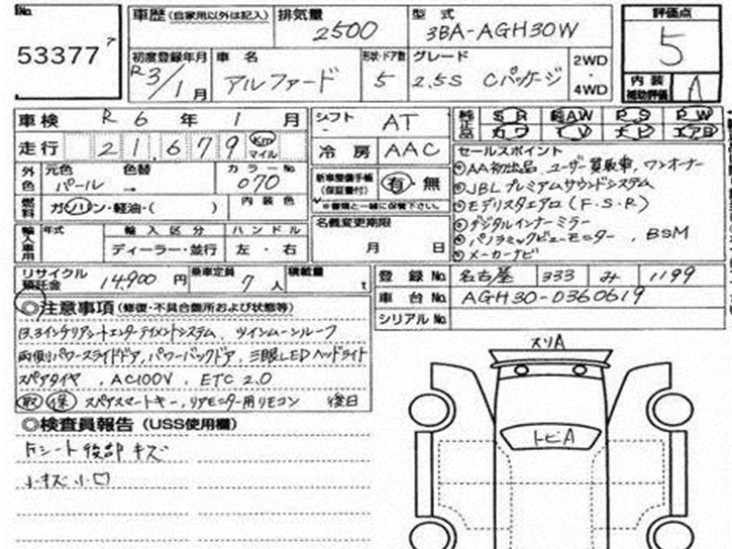 No.
53377
車歴 (自家用以外は記入)
排気量 2500
型式 3BA-AGH30W
評価点 5
初度登録年月 R3/1月
車名 アルファード
形状・ドア数 5
グレード 2.5S Cパッケージ
2WD・4WD
内装補助評価 A
車検 R6年1月
走行 21,679 Km マイル
シフト AT
冷房 AAC
S R AAW P S P W
カワ T V ナビ エアB
外色 元色 パール 色替 → カラーNo 070
新車整備手帳(保証書付) 有・無
※書類と一緒に保管下さい。
燃料 ガソリン・軽油・( ) 内装色
セールスポイント
AA初出品、ユーザー買取車、ワンオーナー
JBLプレミアムサウンドシステム
モデリスタエアロ(F.S.R)
デジタルインナーミラー
パノラミックビューモニター、BSM
メーカーナビ
輸入車用 年式 輸入区分 ハンドル
ディーラー・並行 左・右
名義変更期限
月 日
リサイクル預託金 14,900円
乗車定員 7人
積載量 t
登録No. 名古屋 333 み 1199
車台No. AGH30-0360619
シリアルNo.
◎注意事項(修復・不具合箇所および状態等)
13.3インチリアシートエンターテイメントシステム、ツインムーンルーフ
両側パワースライドドア、パワーバックドア、三眼LEDヘッドライト
スペアタイヤ、AC100V、ETC2.0
取 保 スペアスマートキー、リアモニター用リモコン 後日
◎検査員報告(USS使用欄)
Fシート後部キズ
小キズ小凹
スリA
トビA